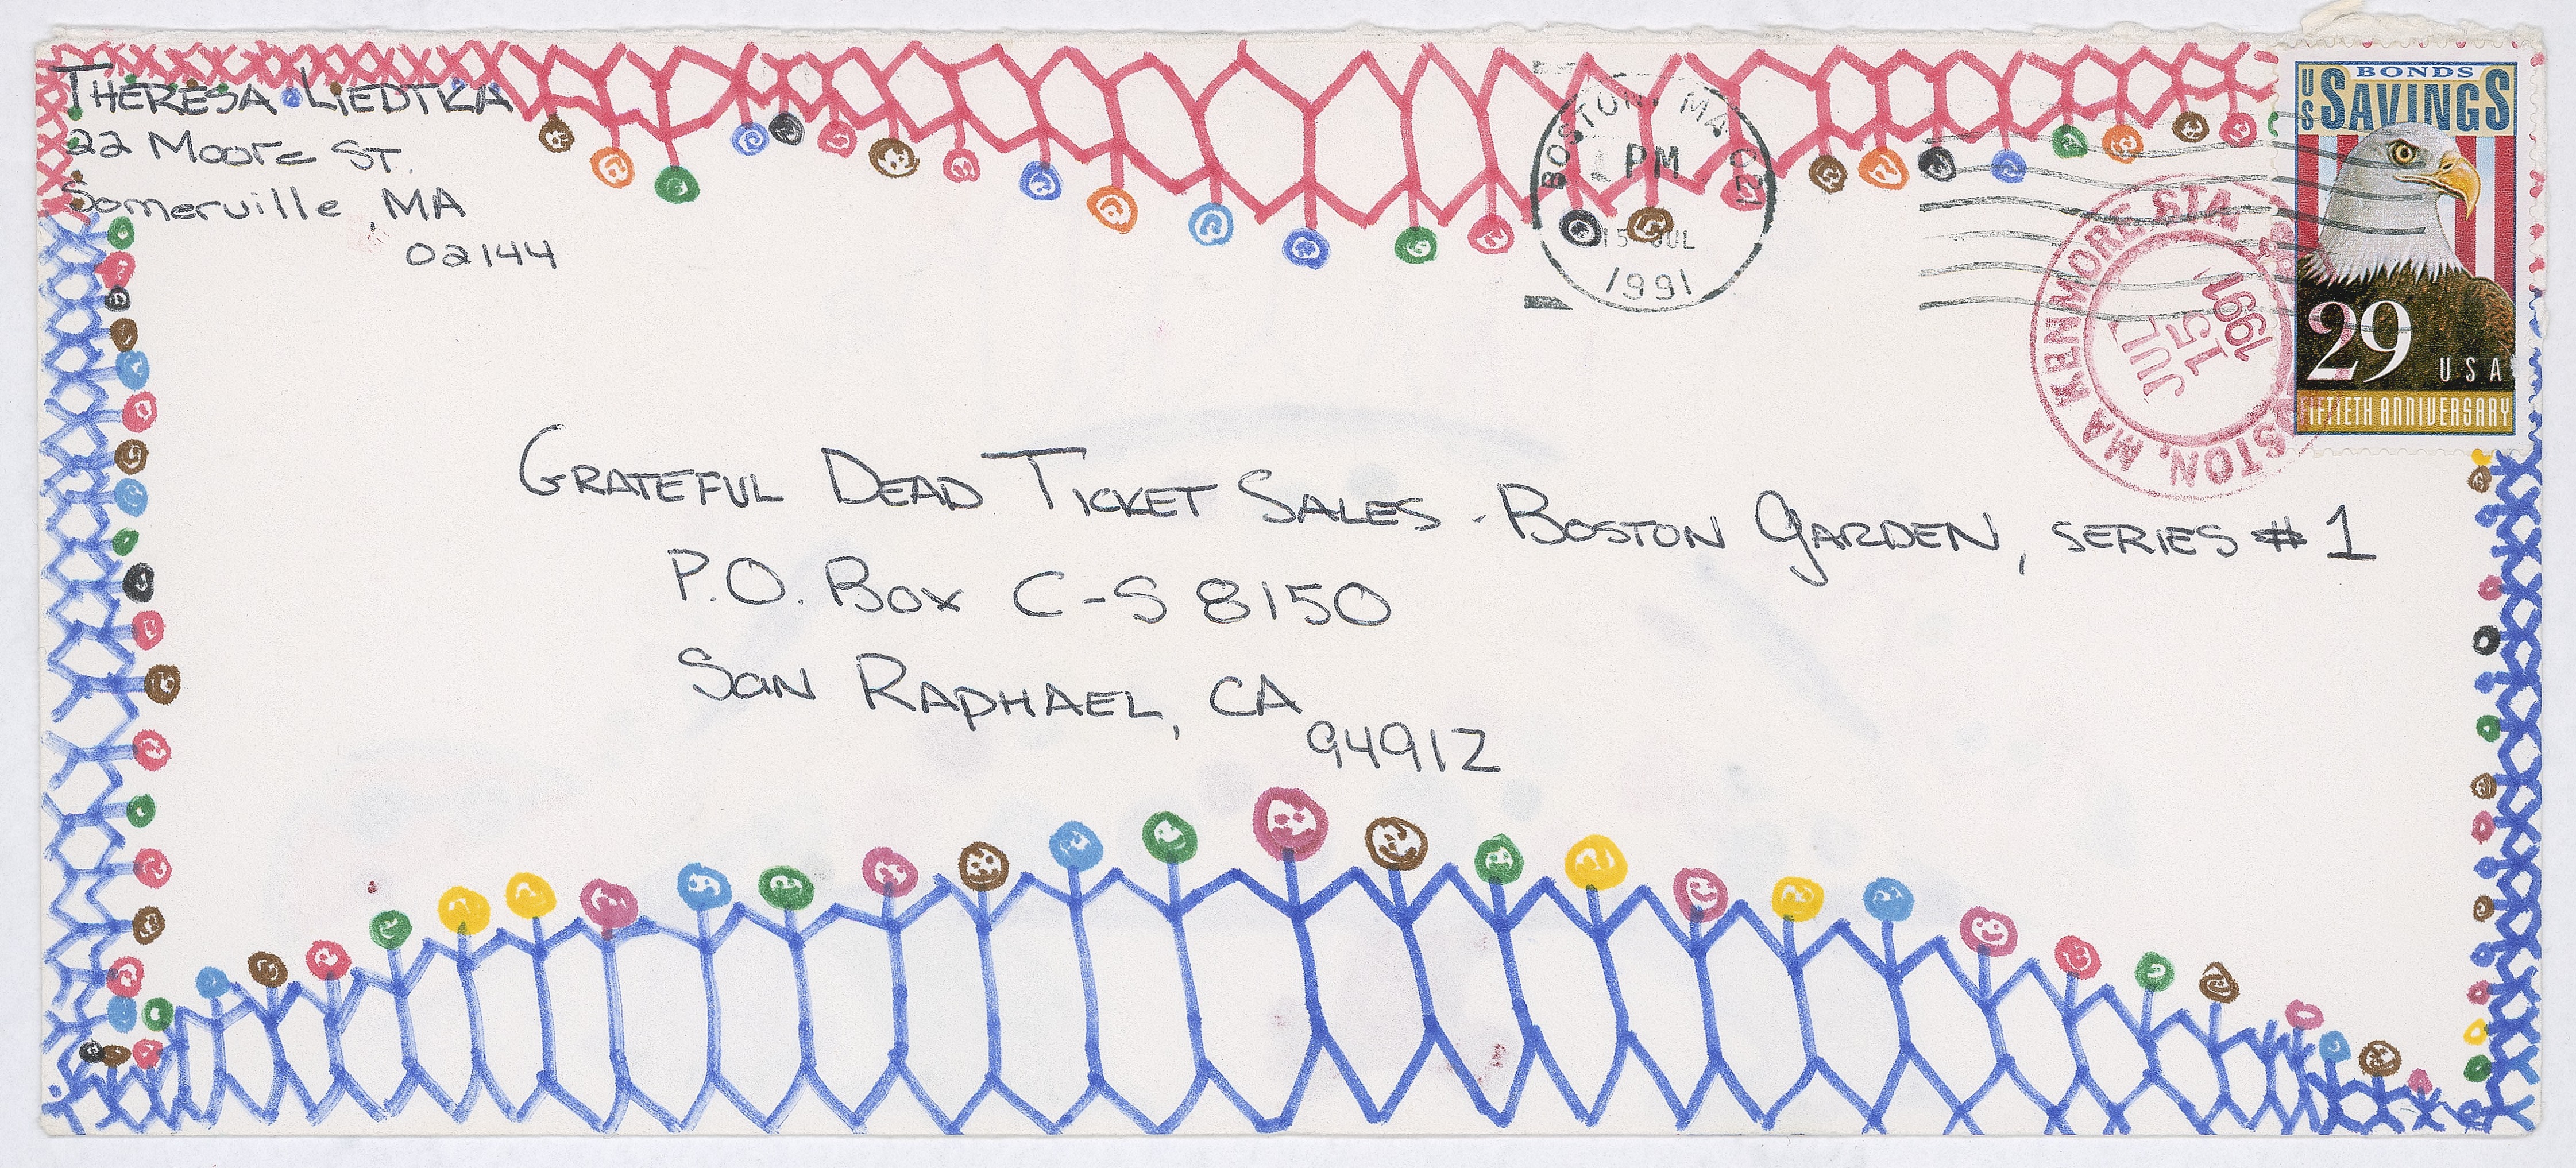 THERESA LIEDTKA
22 Moore ST.
Somerville, MA
02144
BOSTON, MA 021
PM
15 JUL
1991
US BONDS
SAVINGS
29 USA
FIFTIETH ANNIVERSARY
KENMORE STA
JUL
15
1991
STON, MA
GRATEFUL DEAD TICKET SALES - BOSTON GARDEN, SERIES # 1
P.O. Box C-S 8150
San RAPHAEL, CA
94912